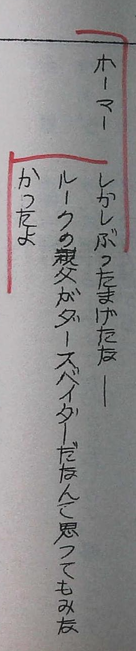 ホーマー　しかしぶったまげたなー
ルークの親父がダースベイダーだなんて思ってもみな
かったよ